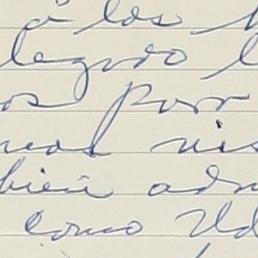 a los
legado
os por
mos vis
bien adm
como Ud